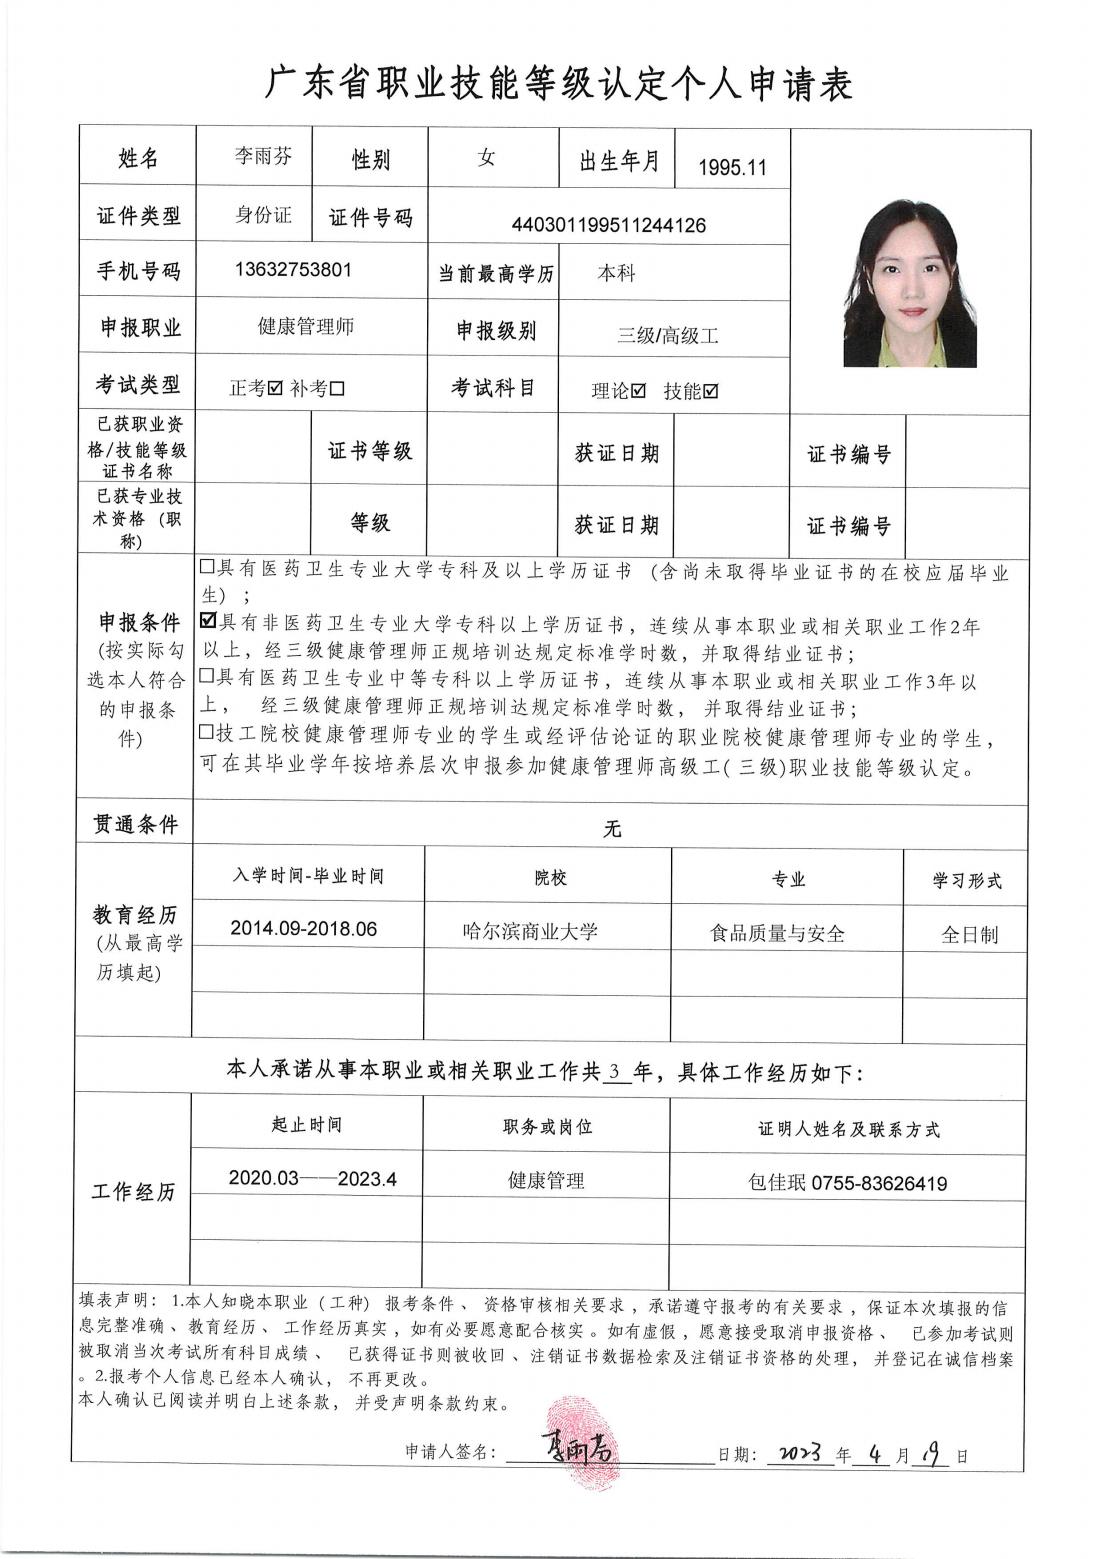 广东省职业技能等级认定个人申请表
姓名 李雨芬 性别 女 出生年月 1995.11
证件类型 身份证 证件号码 440301199511244126
手机号码 13632753801 当前最高学历 本科
申报职业 健康管理师 申报级别 三级/高级工
考试类型 正考☑ 补考☐ 考试科目 理论☑ 技能☑
已获职业资
格/技能等级
证书名称
证书等级 获证日期 证书编号
已获专业技
术资格 (职
称)
等级 获证日期 证书编号
申报条件
(按实际勾
选本人符合
的申报条
件)
☐具有医药卫生专业大学专科及以上学历证书 (含尚未取得毕业证书的在校应届毕业
生) ;
☑具有非医药卫生专业大学专科以上学历证书，连续从事本职业或相关职业工作2年
以上，经三级健康管理师正规培训达规定标准学时数，并取得结业证书；
☐具有医药卫生专业中等专科以上学历证书，连续从事本职业或相关职业工作3年以
上， 经三级健康管理师正规培训达规定标准学时数， 并取得结业证书；
☐技工院校健康管理师专业的学生或经评估论证的职业院校健康管理师专业的学生，
可在其毕业学年按培养层次申报参加健康管理师高级工(三级)职业技能等级认定。
贯通条件 无
教育经历
(从最高学
历填起)
入学时间-毕业时间 院校 专业 学习形式
2014.09-2018.06 哈尔滨商业大学 食品质量与安全 全日制
本人承诺从事本职业或相关职业工作共 3 年，具体工作经历如下：
工作经历
起止时间 职务或岗位 证明人姓名及联系方式
2020.03——2023.4 健康管理 包佳珉 0755-83626419
填表声明： 1.本人知晓本职业 (工种) 报考条件 、 资格审核相关要求 ，承诺遵守报考的有关要求 ，保证本次填报的信
息完整准确 、教育经历 、 工作经历真实 ，如有必要愿意配合核实 。如有虚假 ，愿意接受取消申报资格 、 已参加考试则
被取消当次考试所有科目成绩 、 已获得证书则被收回 、注销证书数据检索及注销证书资格的处理， 并登记在诚信档案
。2.报考个人信息已经本人确认， 不再更改。
本人确认已阅读并明白上述条款， 并受声明条款约束。
申请人签名： 李雨芬 日期： 2023 年 4 月 19 日